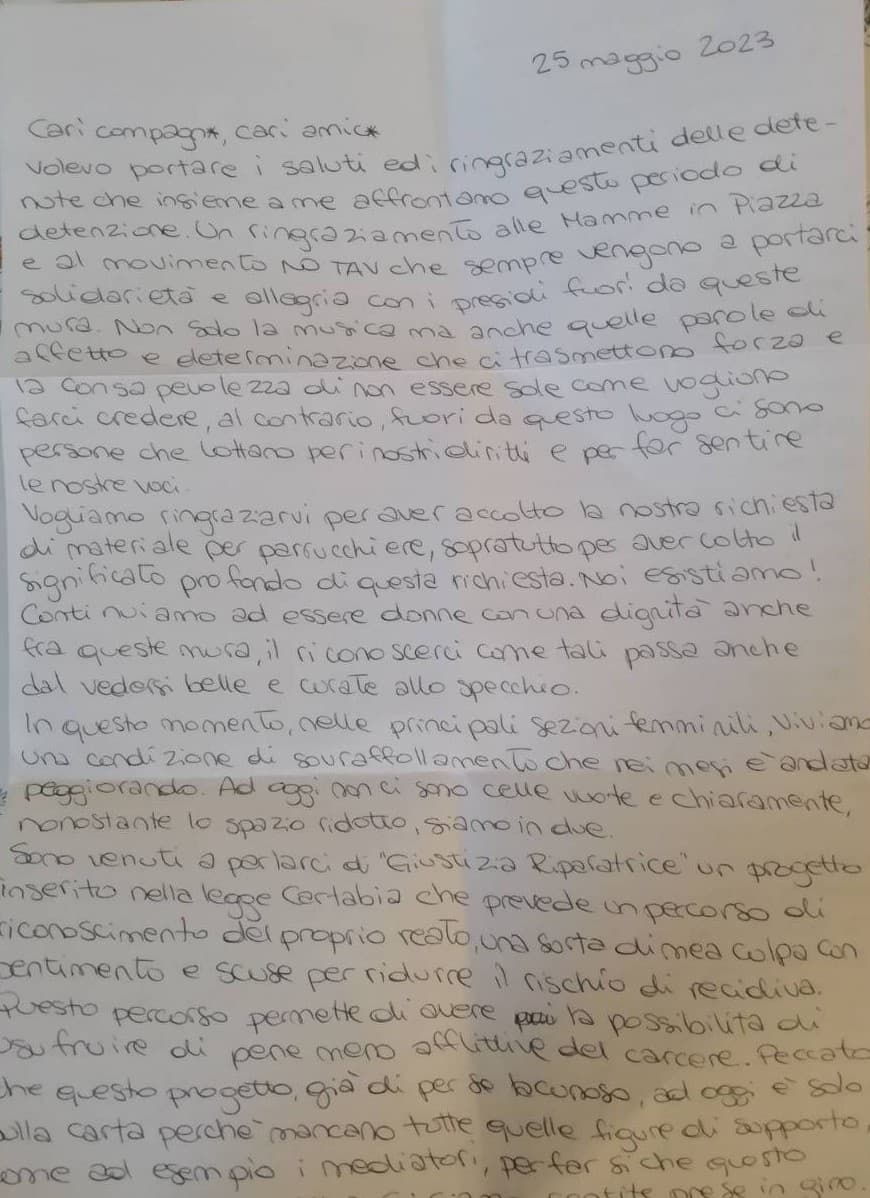 25 maggio 2023
Cari compagn*, cari amic*
Volevo portare i saluti ed i ringraziamenti delle dete-
nute che insieme a me affrontano questo periodo di
detenzione. Un ringraziamento alle Mamme in Piazza
e al movimento NO TAV che sempre vengono a portarci
solidarietà e allegria con i presidi fuori da queste
mura. Non solo la musica ma anche quelle parole di
affetto e determinazione che ci trasmettono forza e
la consapevolezza di non essere sole come vogliono
farci credere, al contrario, fuori da questo luogo ci sono
persone che lottano per i nostri diritti e per far sentire
le nostre voci.
Vogliamo ringraziarvi per aver accolto la nostra richiesta
di materiale per parrucchiere, sopratutto per aver colto il
significato profondo di questa richiesta. Noi esistiamo!
Continuiamo ad essere donne con una dignità anche
fra queste mura, il riconoscerci come tali passa anche
dal vedersi belle e curate allo specchio.
In questo momento, nelle principali sezioni femminili, viviamo
una condizione di sovraffollamento che nei mesi è andata
peggiorando. Ad oggi non ci sono celle vuote e chiaramente,
nonostante lo spazio ridotto, siamo in due.
Sono venuti a parlarci di "Giustizia Riparatrice" un progetto
inserito nella legge Cartabia che prevede un percorso di
riconoscimento del proprio reato, una sorta di mea culpa con
pentimento e scuse per ridurre il rischio di recidiva.
Questo percorso permette di avere la possibilità di
usufruire di pene meno afflittive del carcere. Peccato
che questo progetto, già di per se lacunoso, ad oggi è solo
sulla carta perchè mancano tutte quelle figure di supporto,
come ad esempio i mediatori, per far si che questo
prese in giro.